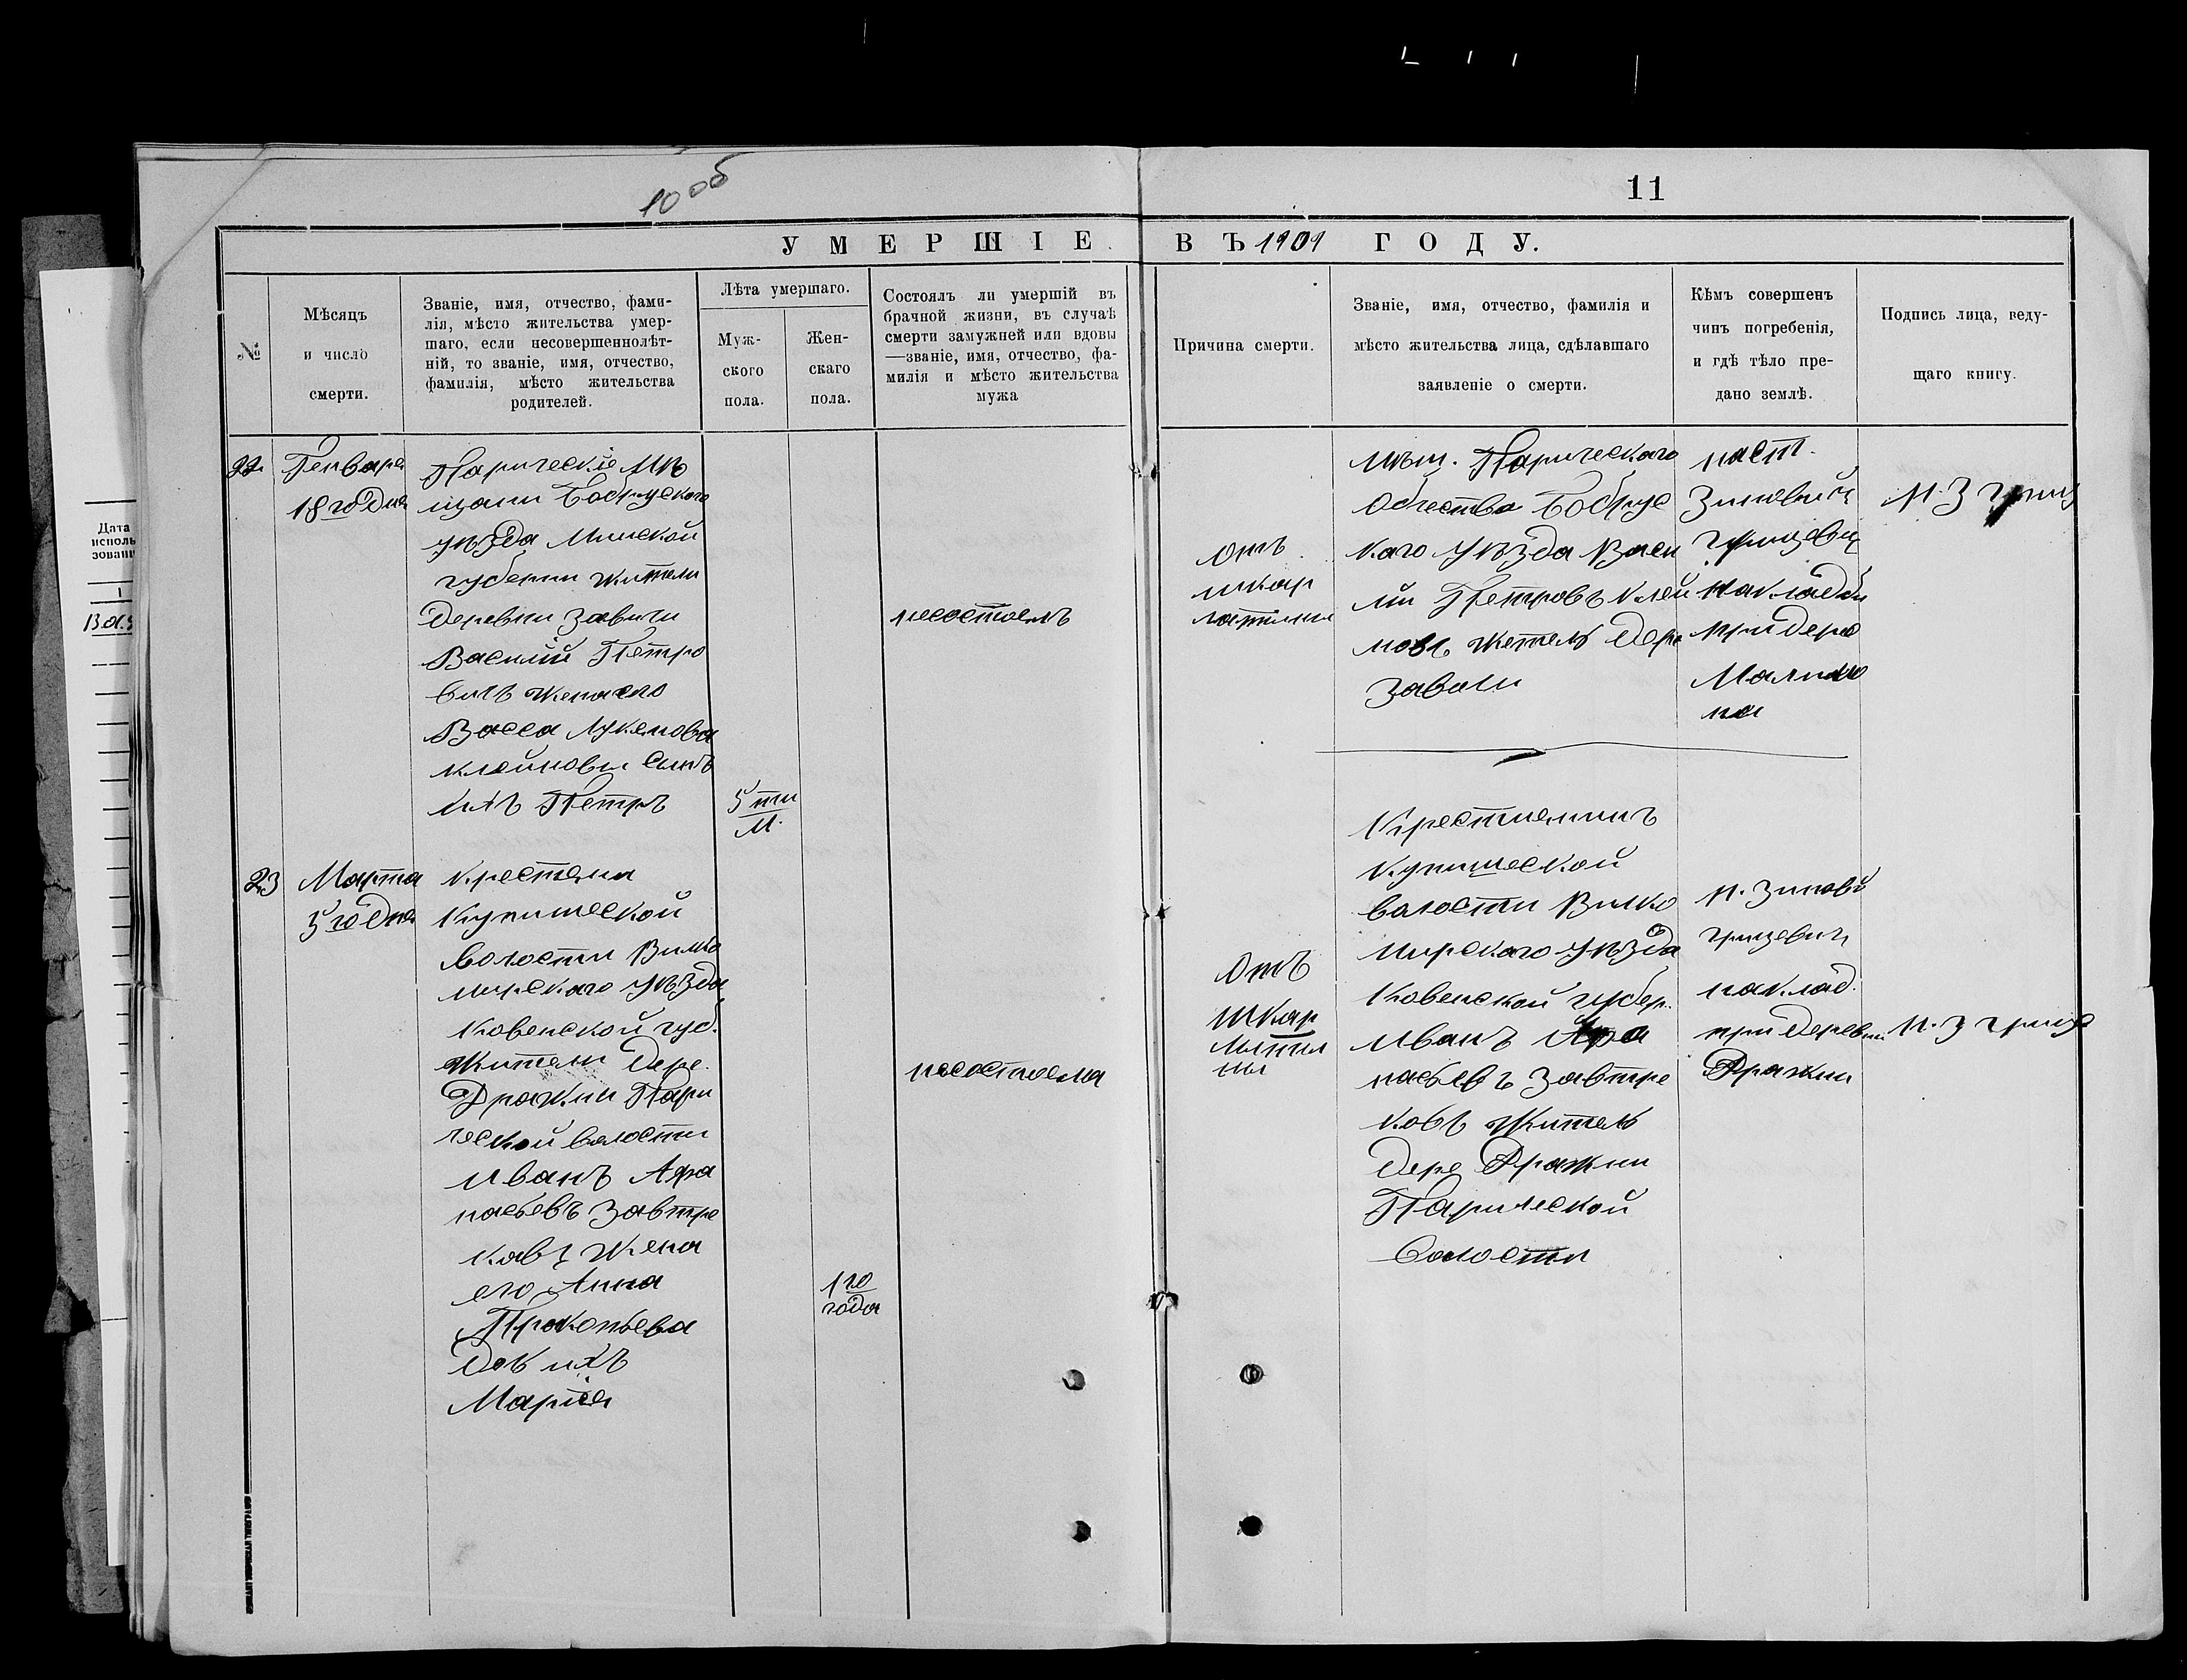 10 об
11
УМЕРШІЕ ВЪ 1909 ГОДУ.
№
Мѣсяцъ
и число
смерти.
Званіе, имя, отчество, фами-
лія, мѣсто жительства умер-
шаго, если несовершеннолѣт-
ній, то званіе, имя, отчество,
фамилія, мѣсто жительства
родителей.
Лѣта умершаго.
Муж-
ского
пола.
Жен-
скаго
пола.
Состоялъ ли умершій въ
брачной жизни, въ случаѣ
смерти замужней или вдовы
—званіе, имя, отчество, фа-
милія и мѣсто жительства
мужа
Причина смерти.
Званіе, имя, отчество, фамилія и
мѣсто жительства лица, сдѣлавшаго
заявленіе о смерти.
Кѣмъ совершенъ
чинъ погребенія,
и гдѣ тѣло пре-
дано землѣ.
Подпись лица, веду-
щаго книгу.
22
Генваря
18 го дня
Парическіе мѣ
щани Бобруского
уѣзда Минской
губерни жители
деревни Заволи
Василій Петро
вичъ жена его
Васса Лукянова
Клейновы сынъ
ихъ Петръ
5 ти
м.
несостоялъ
отъ
шкар
латины
мѣщ. Парического
общества Бобрус
каго уѣзда Васи
лий Петровъ Клей
новъ житель дере
Заволи
наст.
Зиновий
Грицевич
на кладби
при дерев
Малино
М. З Гриц
23
Марта
5 го дня
крестяни
Купишеской
волости Вилко
мирскаго уѣзда
Ковенской губ.
жители дере.
Дражни Пари
ческой волости
Иванъ Афа
насьевъ Завтре
ковъ жена
его Анна
Прокопьева
доч ихъ
Мария
1 го
года
несостояла
Отъ
Шкар
латил
ны
Крестиянинъ
Купишеской
волости Вилко
мирскаго уѣзда
Ковенской губер.
Иванъ Афа
насьевъ Завтре
ковъ житель
дере Дражни
Парической
волости
н. Зиновий
Грицевич
на клад.
при деревни
Дражни
Н. З Гриц
Дата
исполь
зования
1